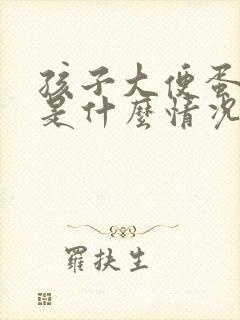 孩子大便蛋
是什麼情況
羅扶生